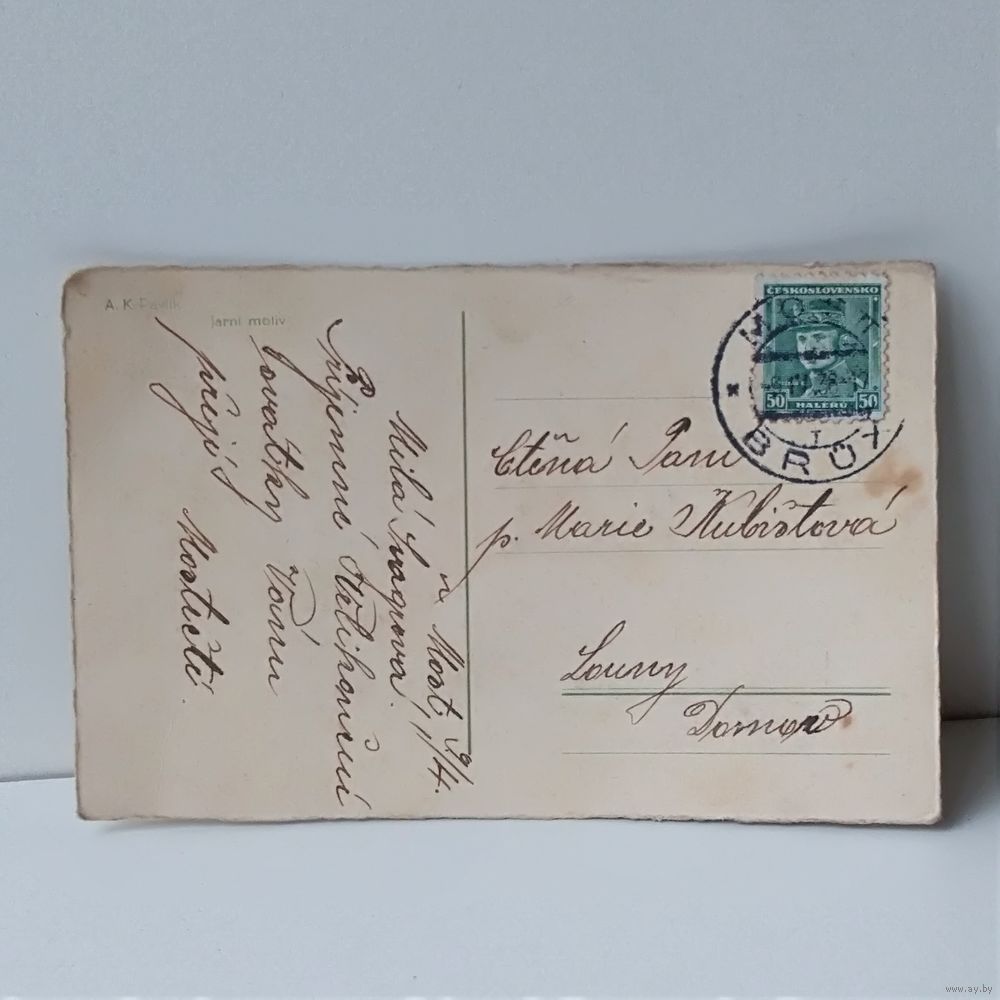 A. K. Pavlík
Jarní motiv
v Most, 9/4.
Milá Švagrová.
Příjemné
Vám
přejí
Mostečtí.
ČESKOSLOVENSKO
50 HALÉRŮ 50
MOST
BRÜX
Ctěná Paní
p. Marie Kubištová
Louny
Domov
www.ay.by